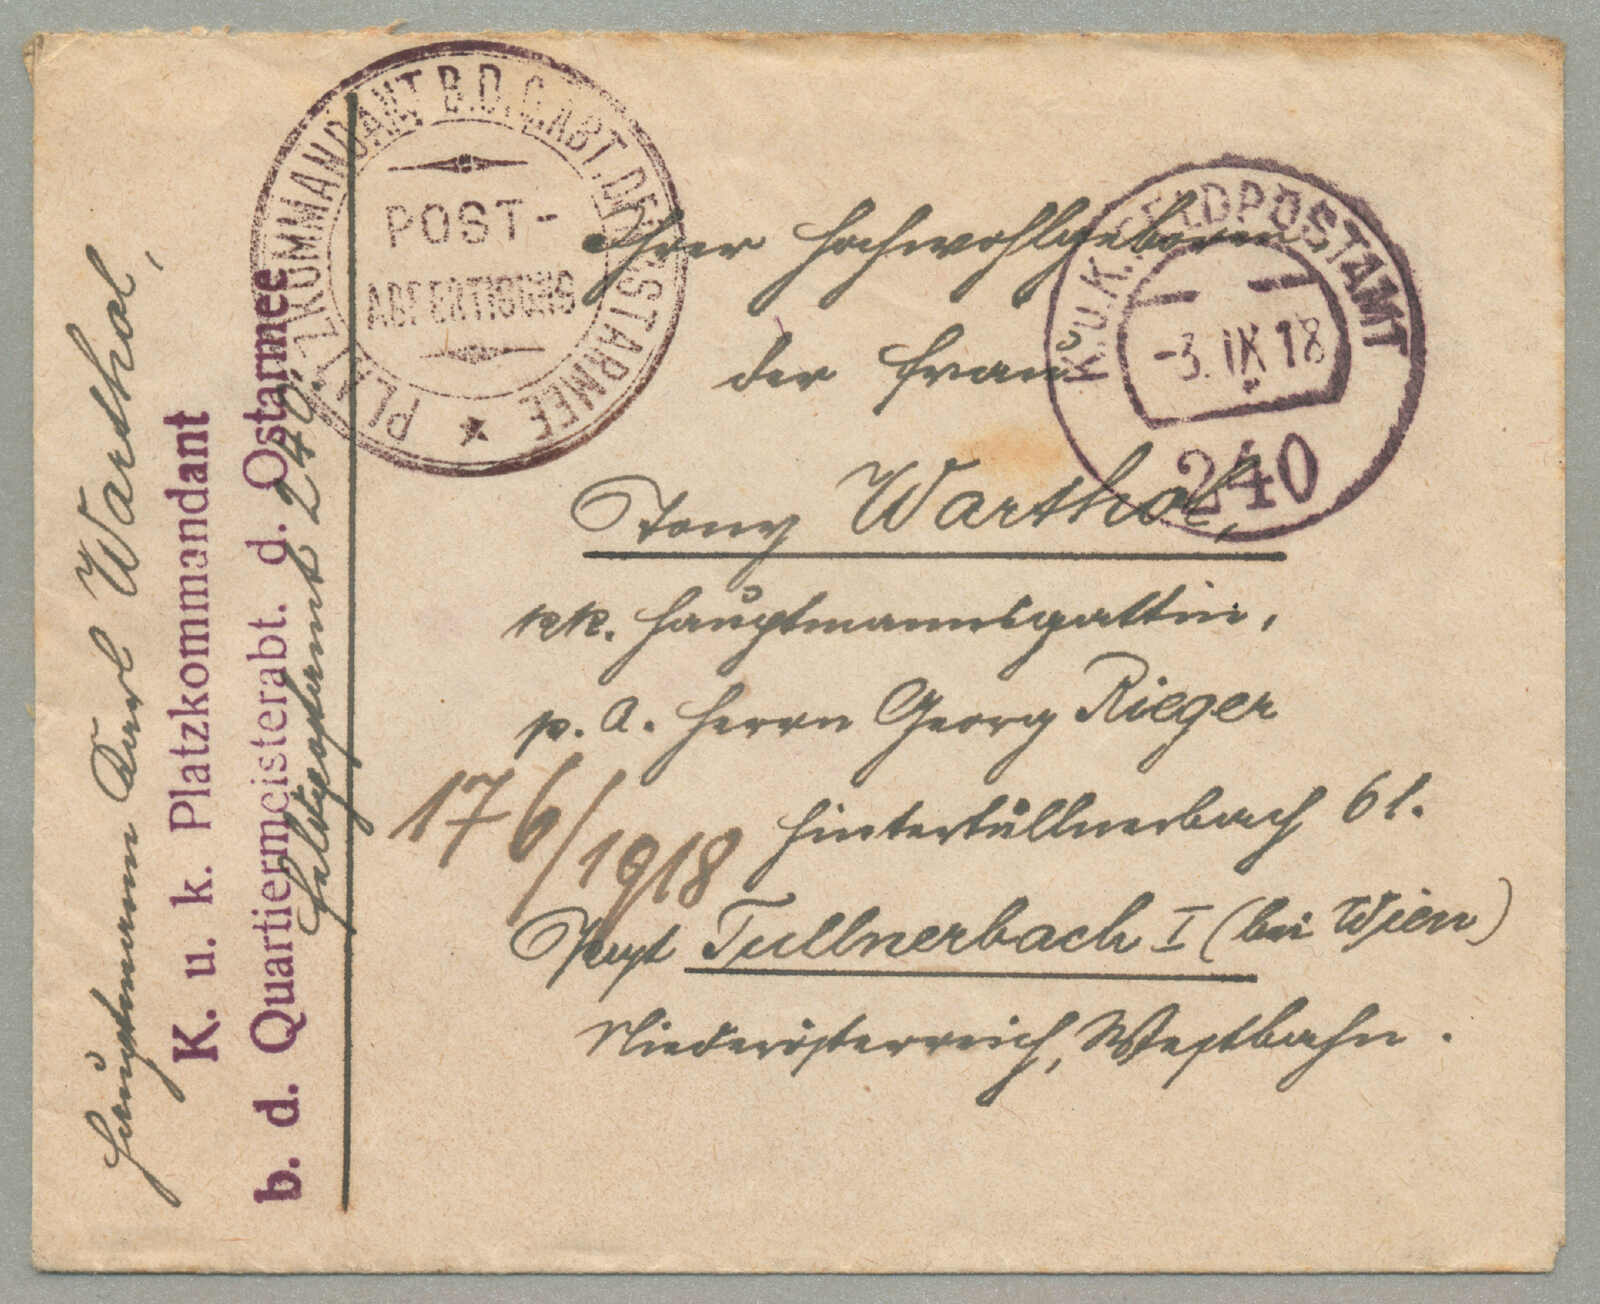 Hauptmann Karl Warthol,
K. u. k. Platzkommandant
b. d. Quartiermeisterabt. d. Ostarmee
Feldpostamt 240.
PLATZKOMMANDANT B.D.Q.ABT.DER OSTARMEE
POST-
ABFERTIGUNG
K.u.K. FELDPOSTAMT
-3. IX 18
240
Ihrer Hochwohlgeboren
der Frau
Tony Warthol,
kk. Hauptmannsgattin,
p. A. Herrn Georg Rieger
176/1918
Hintertullnerbach 61.
Post Tullnerbach I (bei Wien)
Niederösterreich, Westbahn.